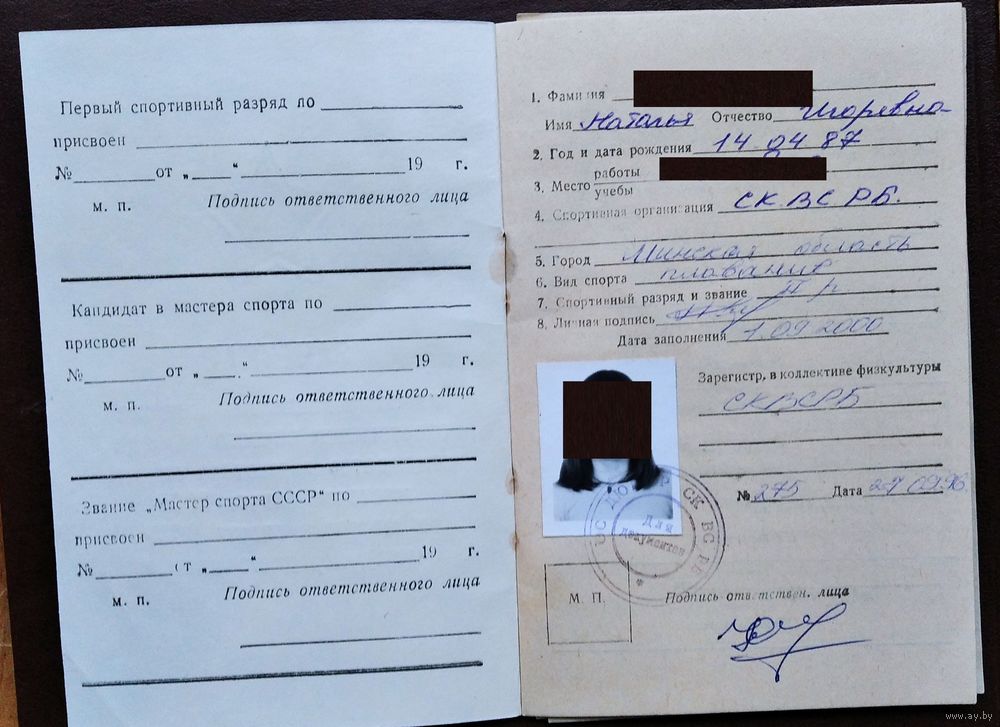 Первый спортивный разряд по
присвоен
№ от „ “ 19 г.
м. п. Подпись ответственного лица
Кандидат в мастера спорта по
присвоен
№ от „ “ 19 г.
м. п. Подпись ответственного лица
Звание „Мастер спорта СССР“ по
присвоен
№ от „ “ 19 г.
м. п. Подпись ответственного лица
1. Фамилия
Имя Наталья Отчество Игоревна
2. Год и дата рождения 14 04 87
3. Место работы учебы
4. Спортивная организация СК ВС РБ.
5. Город Минская область
6. Вид спорта плавание
7. Спортивный разряд и звание II р
8. Личная подпись
Дата заполнения 1.09.2000
Зарегистр. в коллективе физкультуры
СКВСРБ
№ 275 Дата 27 09.96
СК ВС РБ
Для
документов
М. П. Подпись ответствен. лица
www.ay.by